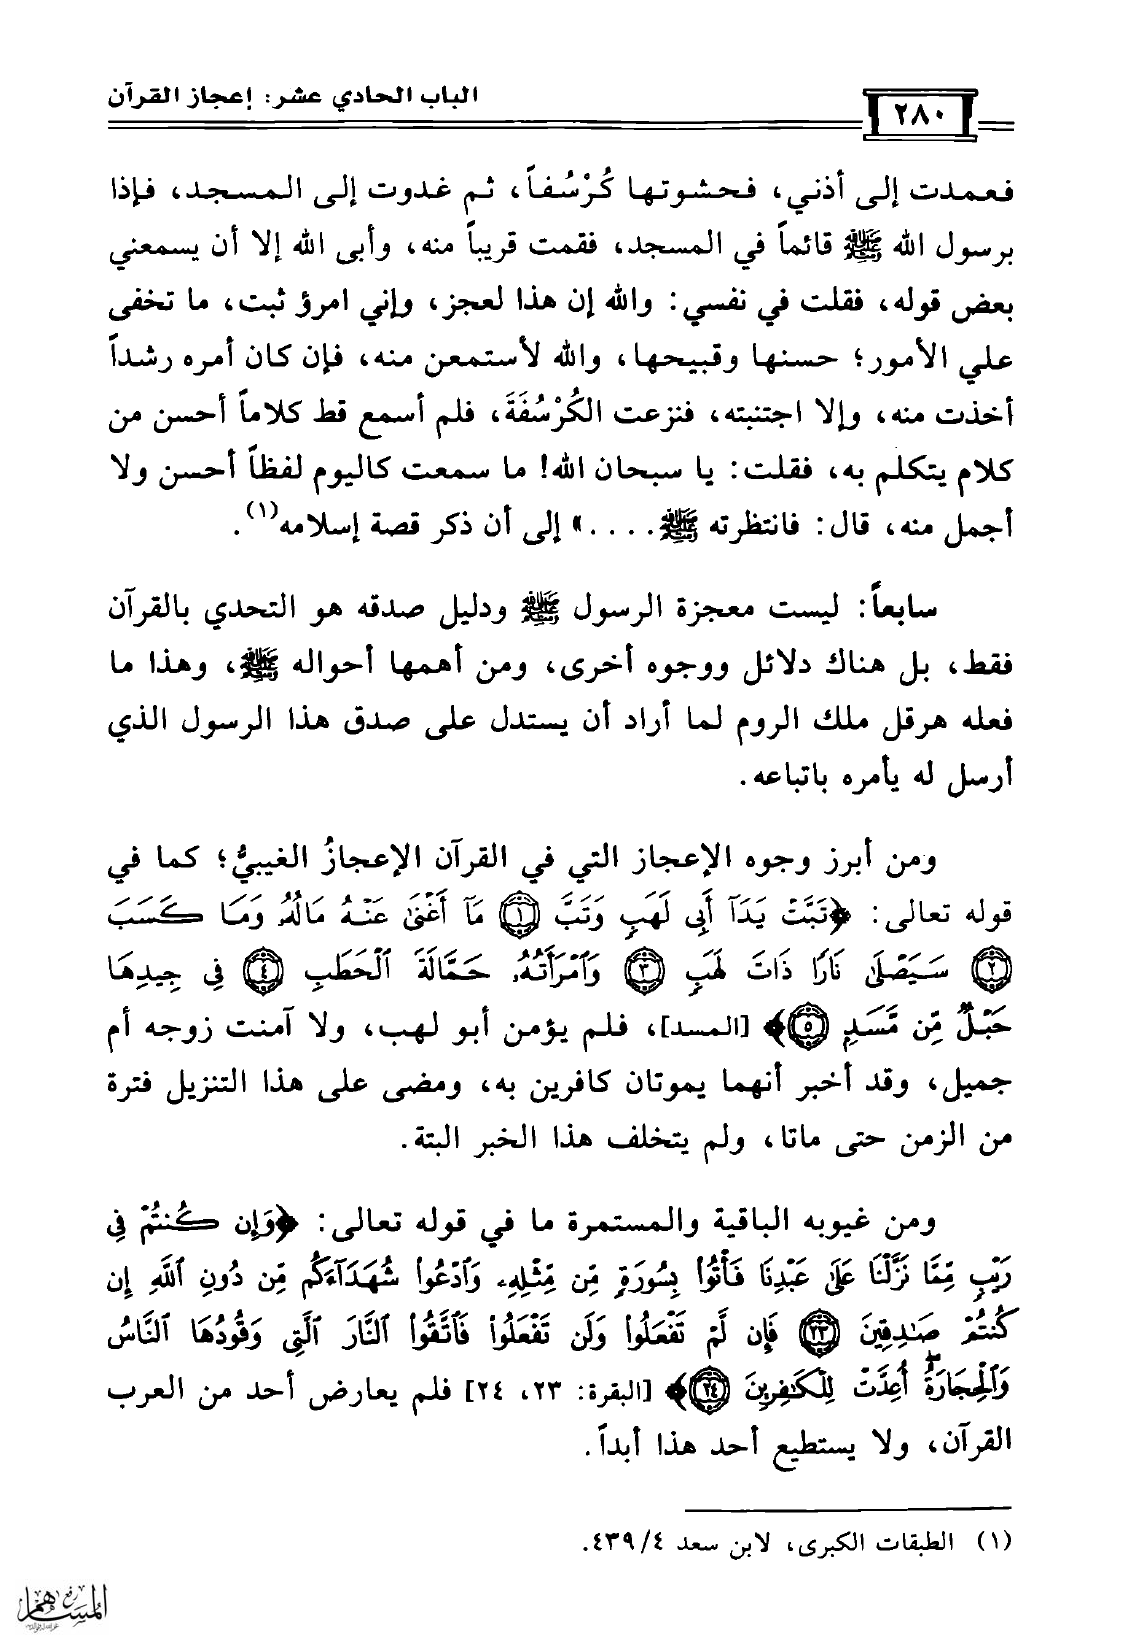 الباب الحادي عشر: إعجاز القرآن
٢٨٠
فعمدت إلى أذني، فحشوتها كُرْسُفاً، ثم غدوت إلى المسجد، فإذا
برسول الله ﷺ قائماً في المسجد، فقمت قريباً منه، وأبى الله إلا أن يسمعني
بعض قوله، فقلت في نفسي: والله إن هذا لعجز، وإني امرؤ ثبت، ما تخفى
علي الأمور؛ حسنها وقبيحها، والله لأستمعن منه، فإن كان أمره رشداً
أخذت منه، وإلا اجتنبته، فنزعت الكُرْسُفَةَ، فلم أسمع قط كلاماً أحسن من
كلام يتكلم به، فقلت: يا سبحان الله! ما سمعت كاليوم لفظاً أحسن ولا
أجمل منه، قال: فانتظرته ﷺ....» إلى أن ذكر قصة إسلامه(١).
سابعاً: ليست معجزة الرسول ﷺ ودليل صدقه هو التحدي بالقرآن
فقط، بل هناك دلائل ووجوه أخرى، ومن أهمها أحواله ﷺ، وهذا ما
فعله هرقل ملك الروم لما أراد أن يستدل على صدق هذا الرسول الذي
أرسل له يأمره باتباعه.
ومن أبرز وجوه الإعجاز التي في القرآن الإعجازُ الغيبيُّ؛ كما في
قوله تعالى: ﴿تَبَّتْ يَدَآ أَبِى لَهَبٍ وَتَبَّ ١ مَآ أَغْنَىٰ عَنْهُ مَالُهُۥ وَمَا كَسَبَ
٢ سَيَصْلَىٰ نَارًا ذَاتَ لَهَبٍ ٣ وَٱمْرَأَتُهُۥ حَمَّالَةَ ٱلْحَطَبِ ٤ فِى جِيدِهَا
حَبْلٌ مِّن مَّسَدٍۭ ٥﴾ [المسد]، فلم يؤمن أبو لهب، ولا آمنت زوجه أم
جميل، وقد أخبر أنهما يموتان كافرين به، ومضى على هذا التنزيل فترة
من الزمن حتى ماتا، ولم يتخلف هذا الخبر البتة.
ومن غيوبه الباقية والمستمرة ما في قوله تعالى: ﴿وَإِن كُنتُمْ فِى
رَيْبٍ مِّمَّا نَزَّلْنَا عَلَىٰ عَبْدِنَا فَأْتُوا۟ بِسُورَةٍ مِّن مِّثْلِهِۦ وَٱدْعُوا۟ شُهَدَآءَكُم مِّن دُونِ ٱللَّهِ إِن
كُنتُمْ صَٰدِقِينَ ٢٣ فَإِن لَّمْ تَفْعَلُوا۟ وَلَن تَفْعَلُوا۟ فَٱتَّقُوا۟ ٱلنَّارَ ٱلَّتِى وَقُودُهَا ٱلنَّاسُ
وَٱلْحِجَارَةُ ۖ أُعِدَّتْ لِلْكَٰفِرِينَ ٢٤﴾ [البقرة: ٢٣، ٢٤] فلم يعارض أحد من العرب
القرآن، ولا يستطيع أحد هذا أبداً.
(١) الطبقات الكبرى، لابن سعد ٤/٤٣٩.